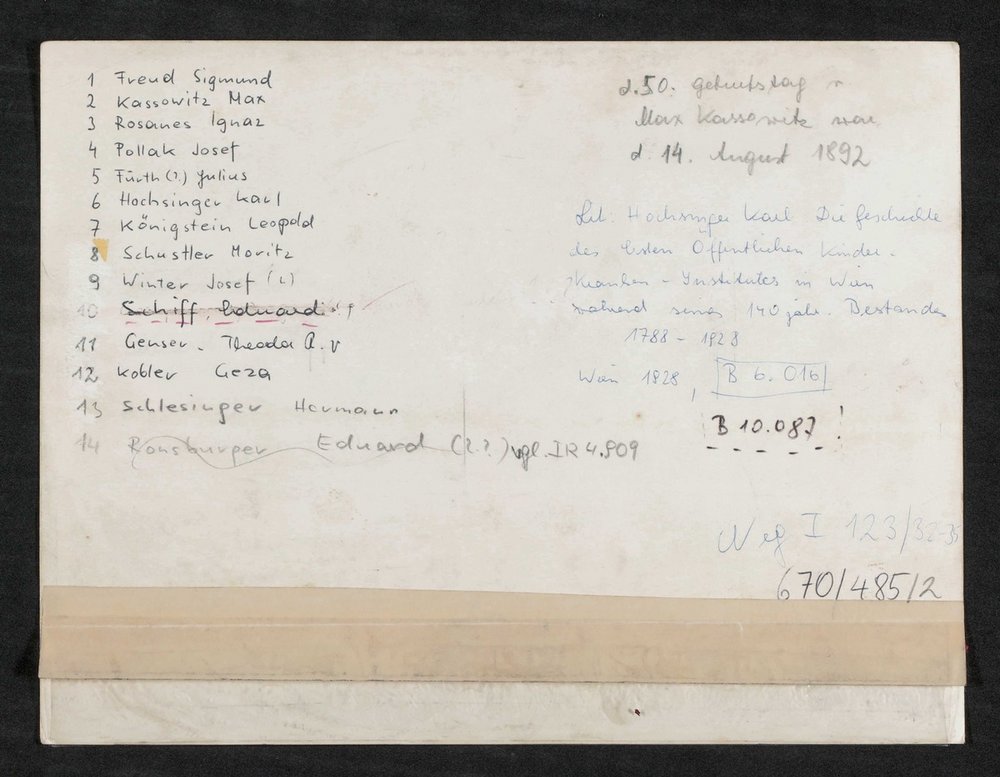 1 Freud Sigmund
2 Kassowitz Max
3 Rosanes Ignaz
4 Pollak Josef
5 Fürth (?) Julius
6 Hochsinger Karl
7 Königstein Leopold
8 Schustler Moritz
9 Winter Josef (?)
10 Schiff, Eduard
11 Genser. Theodor
12 Kobler Geza
13 Schlesinger Hermann
14 Ronsburger Eduard (?.?) vgl. IR 4.809
d. 50. Geburtstag v
Max Kassowitz war
d. 14. August 1892
Lit: Hochsinger Karl Die Geschichte
des Ersten Öffentlichen Kinder-
Kranken-Institutes in Wien
während seines 140 jähr. Bestandes
1788 - 1928
Wien 1828, B 6.016
B 10.087!
Neg I 123/32-35
670/485/2